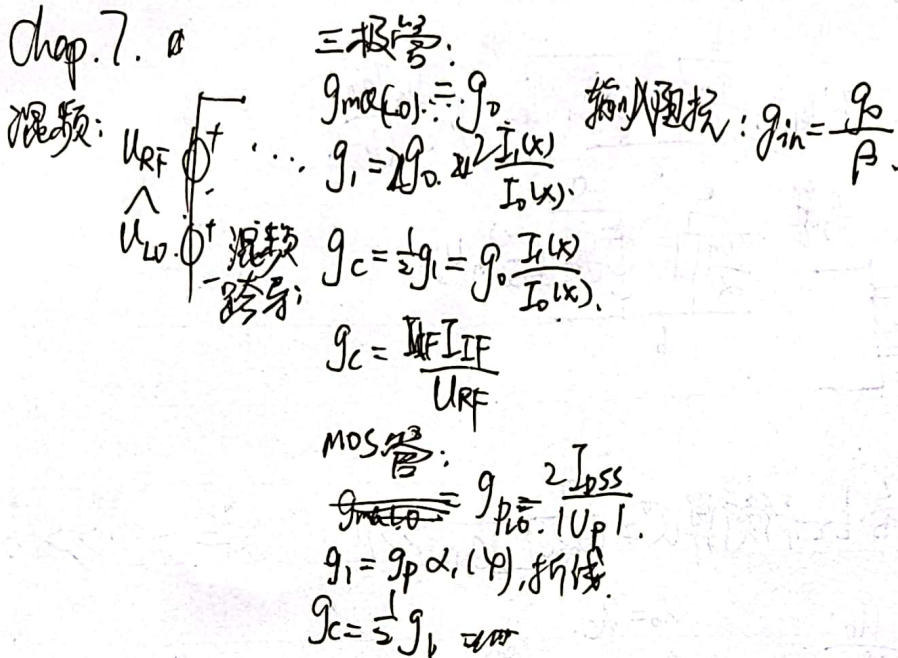 Chap.7.
混频:
U_RF
∧
U_LO.
混频跨导:
三极管:
g_mQ(LO) = g_0
g_1 = g_0 · 2I_1(x)/I_0(x).
g_c = 1/2 g_1 = g_0 I_1(x)/I_0(x).
g_c = I_IF/U_RF
输入阻抗: g_in = g_0/β.
MOS管:
g_p = 2I_DSS/|U_p|.
g_1 = g_p α_1(φ), 折线.
g_c = 1/2 g_1